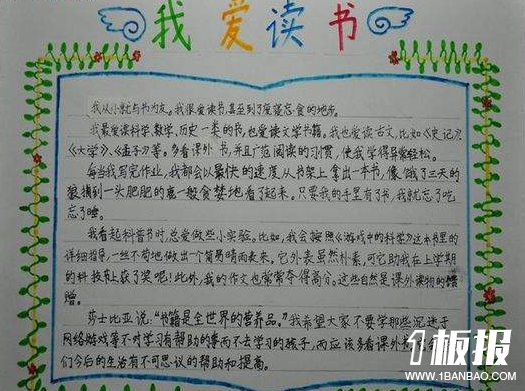 我爱读书
我从小就与书为友。我很爱读书,甚至到了废寝忘食的地步。
我最爱读科学、数学、历史一类的书,也爱读文学书籍。我也爱读古文,比如《史记》、
《大学》、《孟子》等。多看课外书,并且广范阅读的习惯,使我学得异常轻松。
每当我写完作业,我都会以最快的速度从书架上拿出一本书,像饿了三天的
狼摸到一头肥肥的鹿一般贪婪地看了起来。只要我的手里有了书,我就忘了吃
忘了睡。
我看起科普书时,总爱做些小实验。比如,我会按照《游戏中的科学》这本书里的
详细指导,一丝不苟地做出个简易晴雨表来。它外表虽然朴素,可它助我在上学期
的科技节上获了奖呢!此外,我的作文也常常夺得高分。这些自然是课外读物的馈
赠。
莎士比亚说:"书籍是全世界的营养品。"我希望大家不要学那些沉迷于
网络游戏等不对学习有帮助的事而不去学习的孩子,而应该多看课外书
们今后的生活有不可思议的帮助和提高。
1板报
WWW.1BANBAO.COM